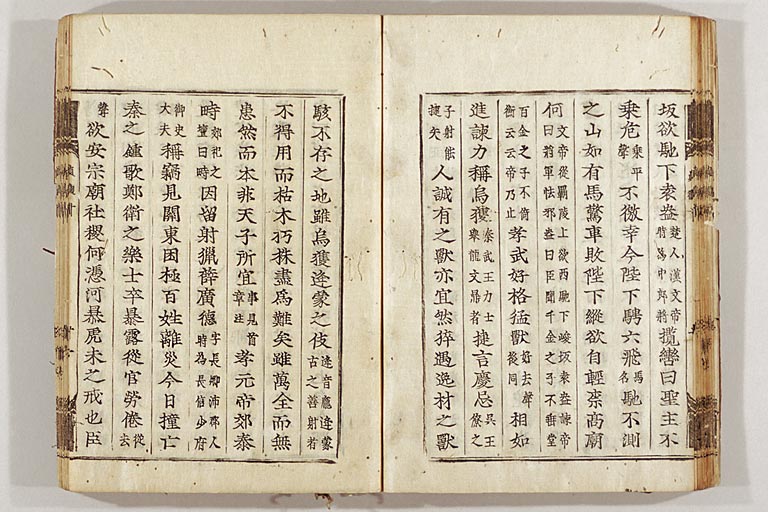 坂欲馳下袁盎楚人漢文帝時爲中郎將攬轡曰聖主不
乘危乘平聲不徼幸今陛下騁六飛馬名馳不測
之山如有馬驚車敗陛下縱欲自輕柰高廟
何文帝從覇陵上欲西馳下峻坂袁盎諫帝曰將軍怯邪盎曰臣聞千金之子不垂堂
百金之子不倚衡云云帝乃止孝武好格猛獸好去聲後同相如
進諫力稱烏獲秦武王力士舉龍文鼎者捷言慶忌吳王僚之
子射能捷矢人誠有之獸亦宜然猝遇逸材之獸
駭不存之地雖烏獲逢蒙之伎逢音龐逢蒙古之善射者
不得用而枯木朽株盡爲難矣雖萬全而無
患然而本非天子所宜事見首章註孝元帝郊泰
時郊祀之壇曰時因留射獵薛廣德字長卿沛郡人時爲長信少府
御史大夫稱竊見關東困極百姓離災今日撞亡
秦之鐘歌鄭衛之樂士卒暴露從官勞倦從去
聲欲安宗廟社稷何憑河暴虎未之戒也臣